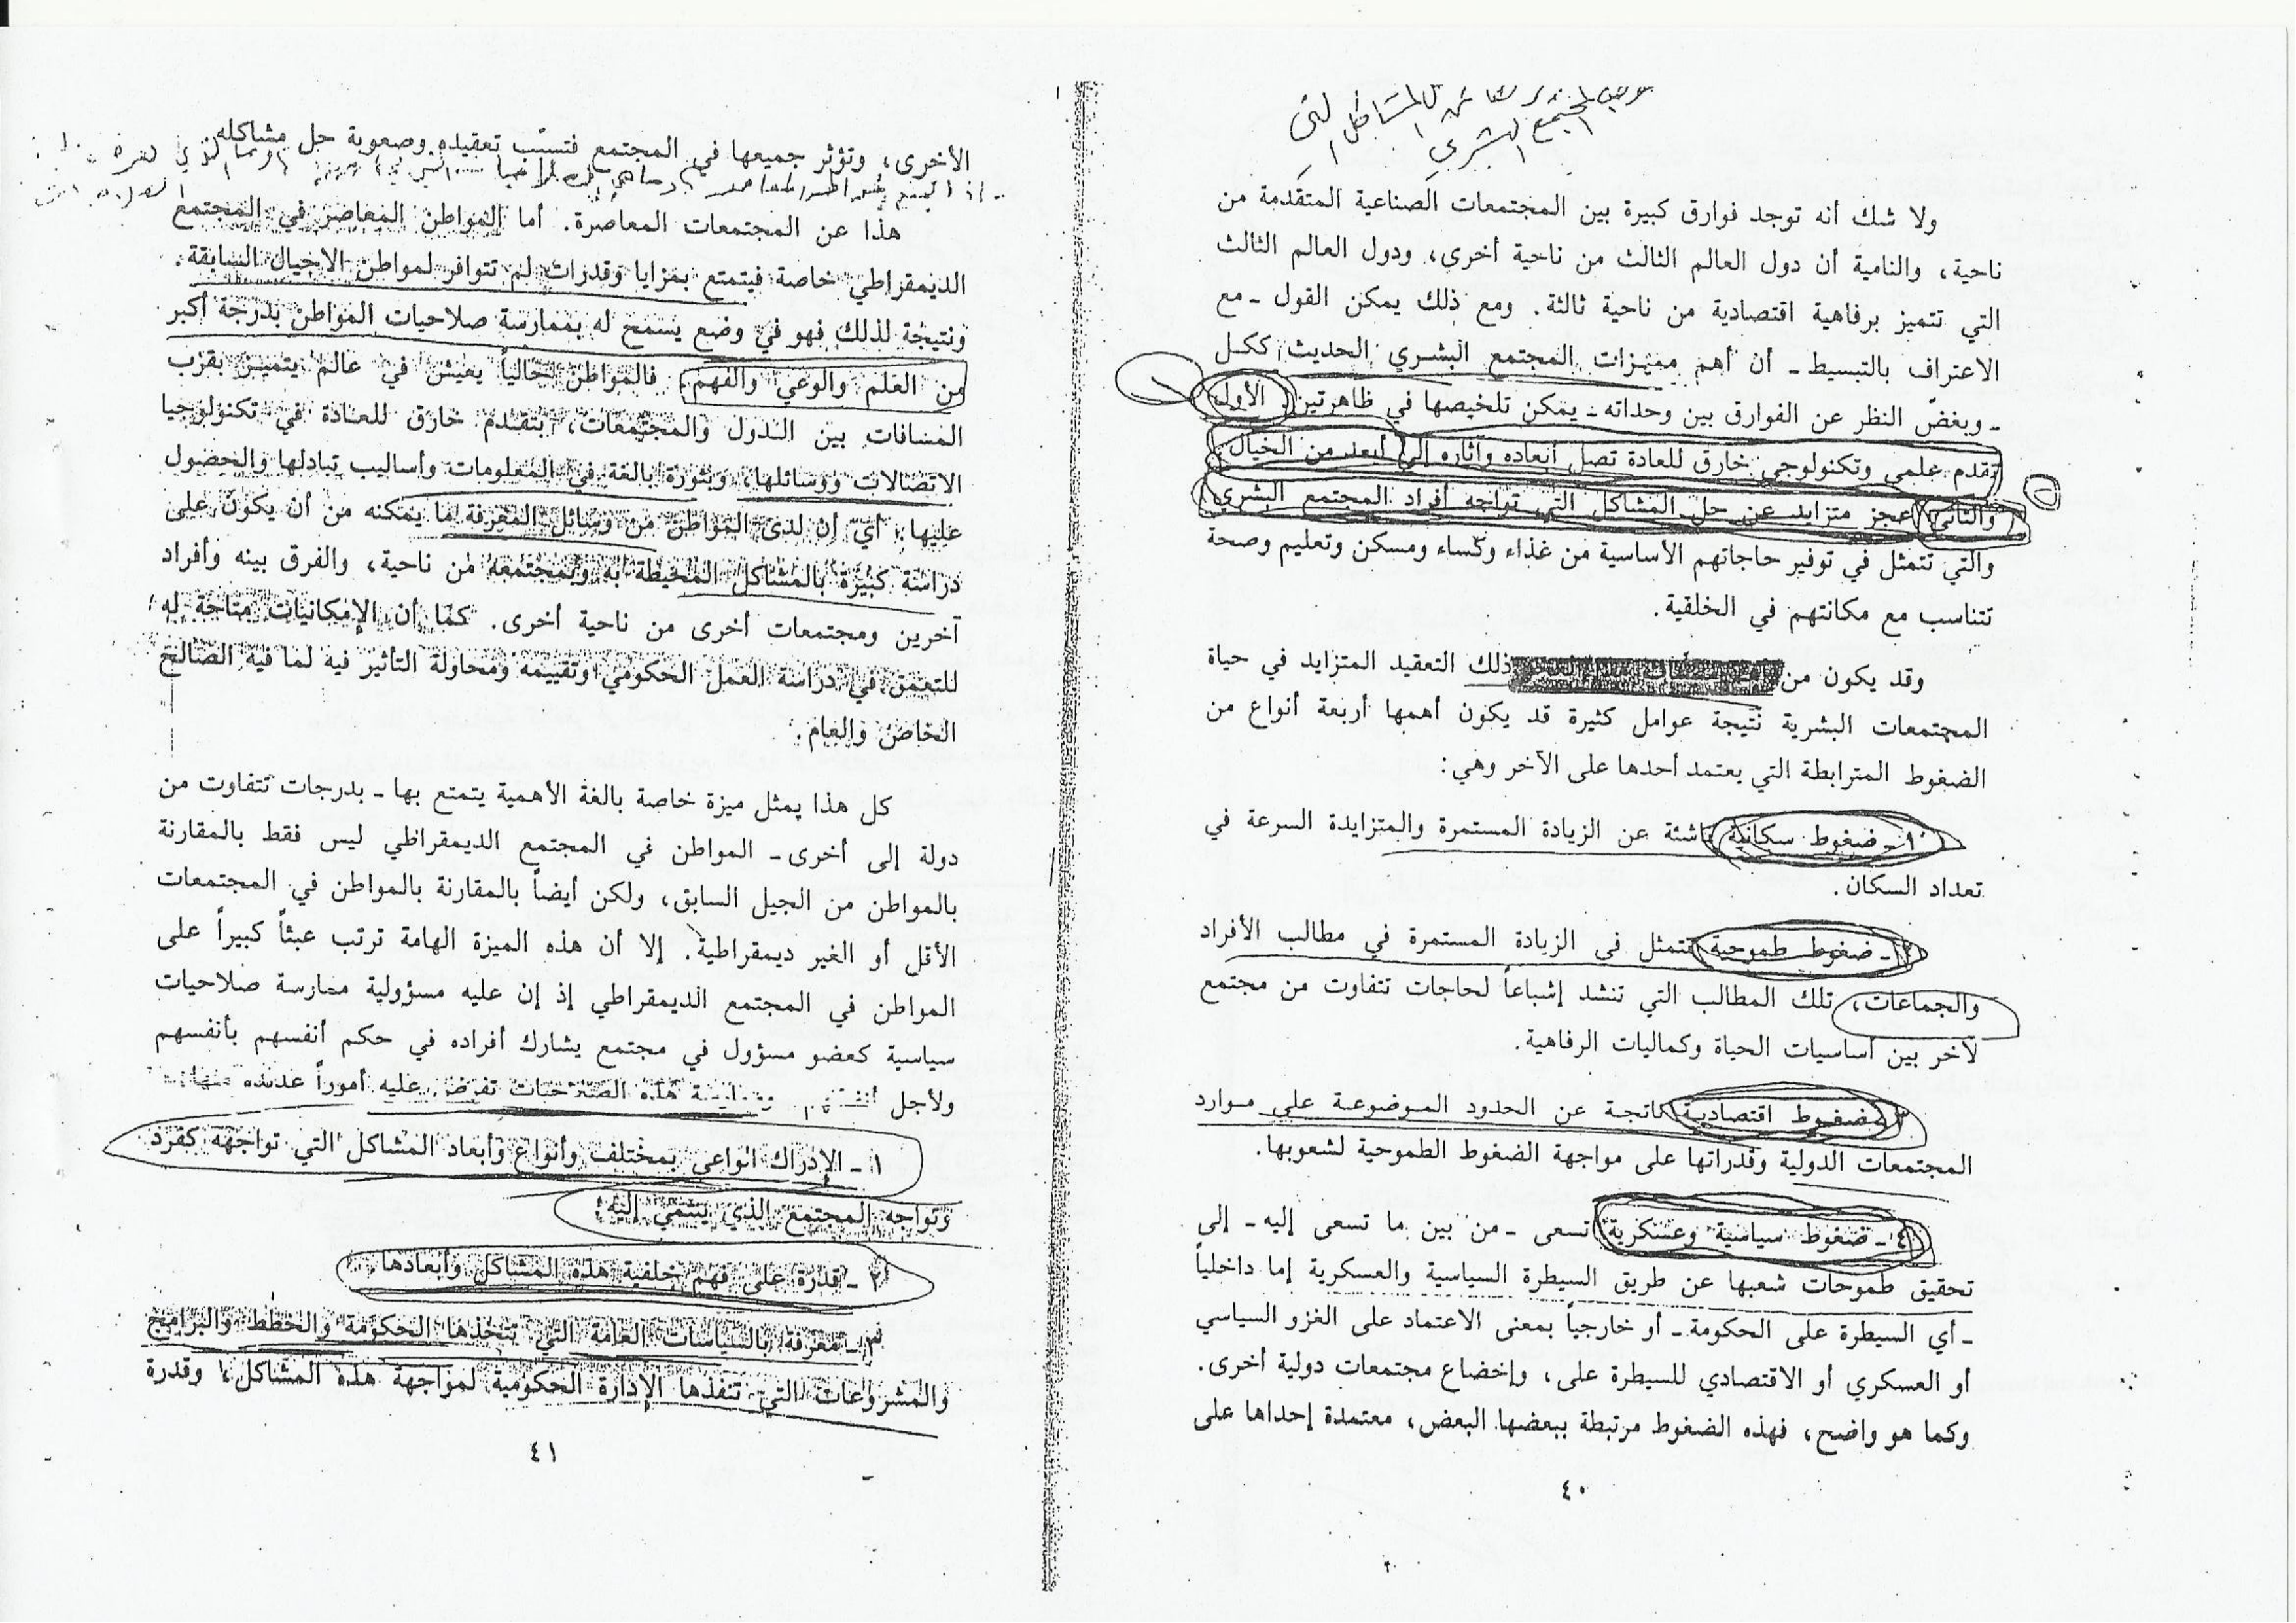 ولا شك أنه توجد فوارق كبيرة بين المجتمعات الصناعية المتقدمة من
ناحية، والنامية أن دول العالم الثالث من ناحية أخرى، ودول العالم الثالث
التي تتميز برفاهية اقتصادية من ناحية ثالثة. ومع ذلك يمكن القول ـ مع
الاعتراف بالتبسيط ـ أن أهم مميزات المجتمع البشري الحديث ككل
ـ وبغض النظر عن الفوارق بين وحداته ـ يمكن تلخيصها في ظاهرتين. الأولى
تقدم علمي وتكنولوجي خارق للعادة تصل أبعاده وآثاره إلى أبعد من الخيال
والثاني عجز متزايد عن حل المشاكل التي تواجه أفراد المجتمع البشري
والتي تتمثل في توفير حاجاتهم الأساسية من غذاء وكساء ومسكن وتعليم وصحة
تتناسب مع مكانتهم في الخلقية.
وقد يكون من ذلك التعقيد المتزايد في حياة
المجتمعات البشرية نتيجة عوامل كثيرة قد يكون أهمها أربعة أنواع من
الضغوط المترابطة التي يعتمد أحدها على الآخر وهي:
١ ـ ضغوط سكانية ناشئة عن الزيادة المستمرة والمتزايدة السرعة في
تعداد السكان.
٢ ـ ضغوط طموحية تتمثل في الزيادة المستمرة في مطالب الأفراد
والجماعات، تلك المطالب التي تنشد إشباعاً لحاجات تتفاوت من مجتمع
لآخر بين أساسيات الحياة وكماليات الرفاهية.
٣ ـ ضغوط اقتصادية ناتجة عن الحدود الموضوعة على موارد
المجتمعات الدولية وقدراتها على مواجهة الضغوط الطموحية لشعوبها.
٤ ـ ضغوط سياسية وعسكرية تسعى ـ من بين ما تسعى إليه ـ إلى
تحقيق طموحات شعبها عن طريق السيطرة السياسية والعسكرية إما داخلياً
ـ أي السيطرة على الحكومة ـ أو خارجياً بمعنى الاعتماد على الغزو السياسي
أو العسكري أو الاقتصادي للسيطرة على، وإخضاع مجتمعات دولية أخرى.
وكما هو واضح، فهذه الضغوط مرتبطة ببعضها البعض، معتمدة إحداها على
٤٠
الأخرى، وتؤثر جميعها في المجتمع فتسبب تعقيده وصعوبة حل مشاكله.
هذا عن المجتمعات المعاصرة. أما المواطن المعاصر في المجتمع
الديمقراطي خاصة فيتمتع بمزايا وقدرات لم تتوافر لمواطن الاجيال السابقة.
ونتيجة لذلك فهو في وضع يسمح له بممارسة صلاحيات المواطن بدرجة أكبر
من العلم والوعي والفهم. فالمواطن حالياً يعيش في عالم يتميز بقرب
المسافات بين الدول والمجتمعات، بتقدم خارق للعادة في تكنولوجيا
الاتصالات ووسائلها، وبثورة بالغة في المعلومات وأساليب تبادلها والحصول
عليها، أي أن لدى المواطن من وسائل المعرفة ما يمكنه من أن يكون على
دراسة كبيرة بالمشاكل المحيطة به وبمجتمعه من ناحية، والفرق بينه وأفراد
آخرين ومجتمعات أخرى من ناحية أخرى. كما أن الإمكانيات متاحة له
للتعمق في دراسة العمل الحكومي وتقييمه ومحاولة التأثير فيه لما فيه الصالح
الخاص والعام.
كل هذا يمثل ميزة خاصة بالغة الأهمية يتمتع بها ـ بدرجات تتفاوت من
دولة إلى أخرى ـ المواطن في المجتمع الديمقراطي ليس فقط بالمقارنة
بالمواطن من الجيل السابق، ولكن أيضاً بالمقارنة بالمواطن في المجتمعات
الأقل أو الغير ديمقراطية. إلا أن هذه الميزة الهامة ترتب عبئاً كبيراً على
المواطن في المجتمع الديمقراطي إذ إن عليه مسؤولية ممارسة صلاحيات
سياسية كعضو مسؤول في مجتمع يشارك أفراده في حكم أنفسهم بأنفسهم
ولأجل هذه الصلاحيات تفرض عليه أموراً عديدة
١ ـ الإدراك الواعي بمختلف وأنواع وأبعاد المشاكل التي تواجهه كفرد
وتواجه المجتمع الذي ينتمي إليه.
٢ ـ قدرة على فهم خلفية هذه المشاكل وأبعادها.
٣ ـ معرفة بالسياسات العامة التي تتخذها الحكومة والخطط والبرامج
والمشروعات التي تنفذها الإدارة الحكومية لمواجهة هذه المشاكل، وقدرة
٤١